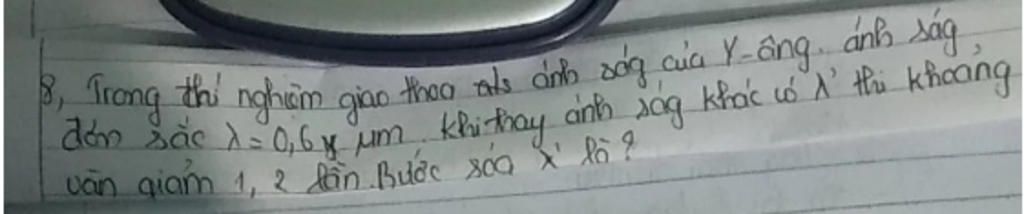 8, Trong thí nghiệm giao thoa ánh sáng của Y-âng. ánh sáng
đơn sắc λ = 0,6 μm. Khi thay ánh sáng khác có λ' thì khoảng
vân giảm 1,2 lần. Bước sóng λ' là?